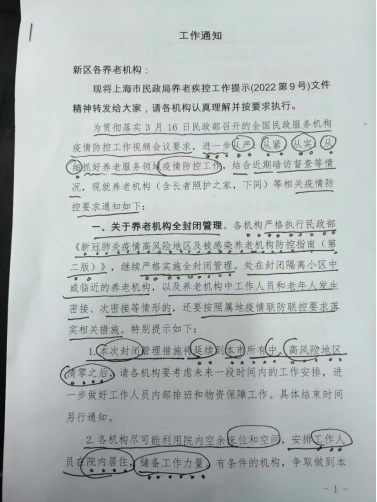 工作通知
新区各养老机构：
现将上海市民政局养老疾控工作提示(2022第9号)文件
精神转发给大家，请各机构认真理解并按要求执行。
为贯彻落实3月16日民政部召开的全国民政服务机构
疫情防控工作视频会议要求，进一步从严、从紧、从实、从
细抓好养老服务领域疫情防控工作，结合近期暗访督查等情
况，现就养老机构（含长者照护之家，下同）等相关疫情防
控要求通知如下：
一、关于养老机构全封闭管理。各机构严格执行民政部
《新冠肺炎疫情高风险地区及被感染养老机构防控指南（第
二版）》，继续严格实施全封闭管理。处在封闭隔离小区中
或临近的养老机构，以及养老机构中工作人员和老年人发生
密接、次密接等情形的，还要按照属地疫情联防联控要求落
实相关措施。特别提示如下：
1.本次封闭管理措施将延续到本市所有中、高风险地区
清零之后，请各机构要考虑未来一段时间内的工作安排，进
一步做好工作人员内部排班和物资保障工作。具体结束时间
另行通知。
2.各机构尽可能利用院内空余床位和空间，安排工作人
员在院内居住，储备工作力量，有条件的机构，争取做到本
- 1 -